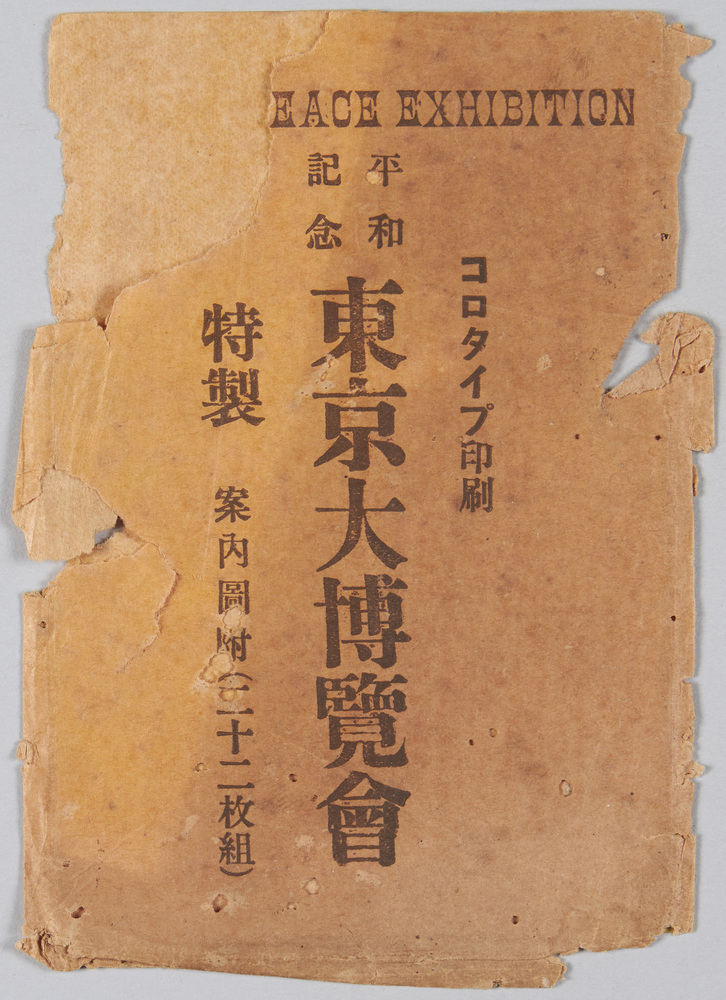 EACE EXHIBITION
コロタイプ印刷
平和
記念
東京大博覽會
特製 案內圖附(三十二枚組)